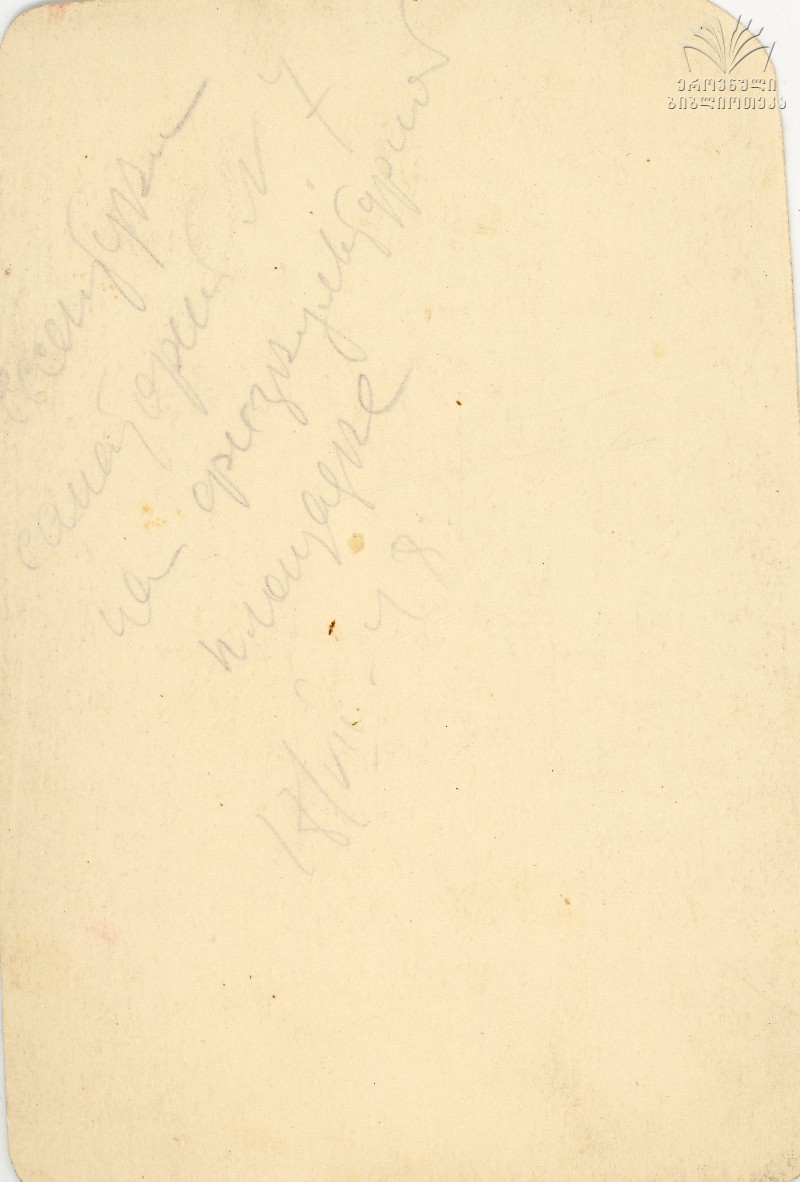 ეროვნული
ბიბლიოთეკა
Ессентуки
санаторий N 7
на физкультурной
площадке
18/VIII - 48